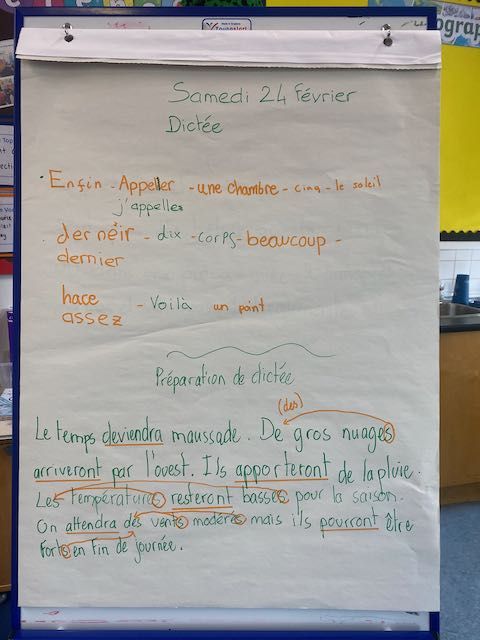 Samedi 24 Février
Dictée
· Enfin - Appeller - une chambre - cinq - le soleil
j'appelles
. derneir - dix - corps - beaucoup -
dernier
hace - Voilà un point
assez
Préparation de dictée
(des)
Le temps deviendra maussade. De gros nuages
arriveront par l'ouest. Ils apporteront de la pluie.
Les températures resteront basses pour la saison.
On attendra des vents modérés mais ils pourront être
forts en fin de journée.